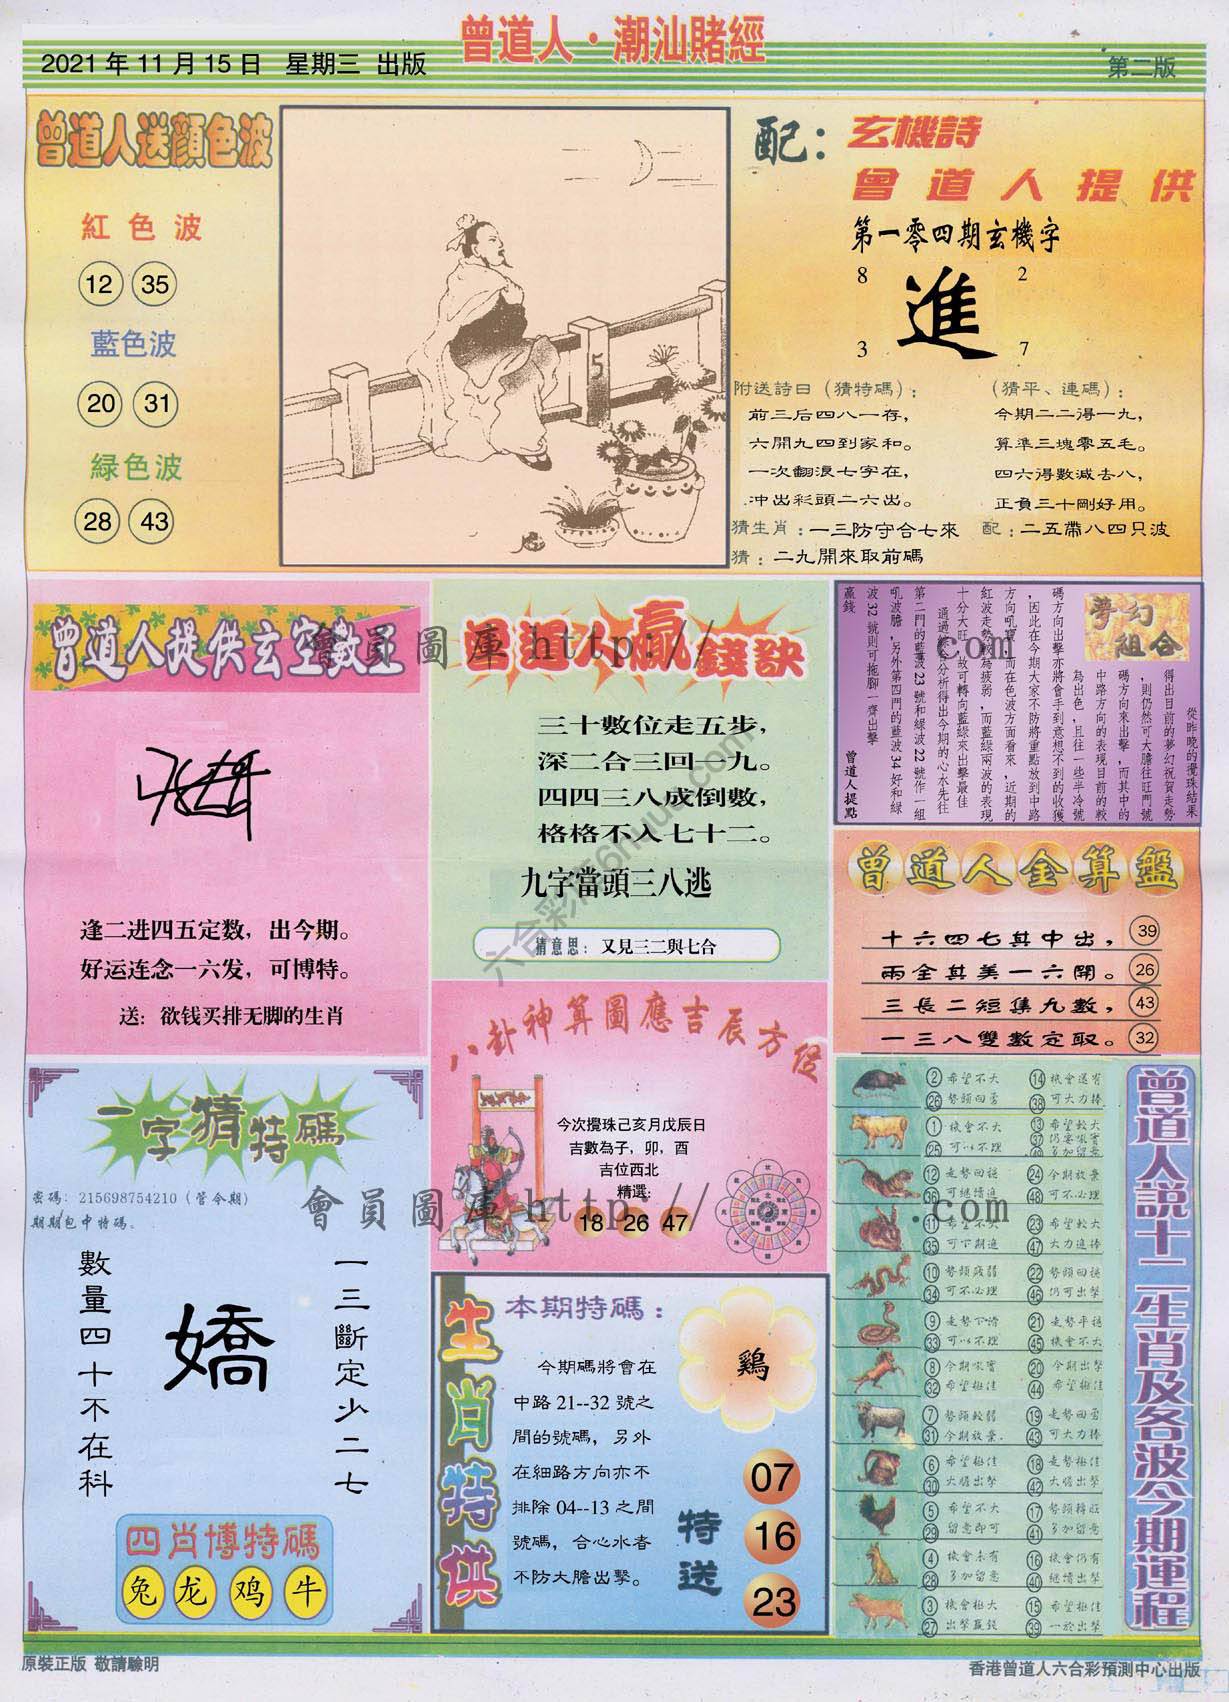 曾道人·潮汕賭經
2021年11月15日 星期三 出版
第二版
曾道人送顏色波
紅色波
12 35
藍色波
20 31
緑色波
28 43
5
配：玄機詩
曾道人提供
第一零四期玄機字
8 2
進
3 7
附送詩日（猜特碼）：
前三后四八一存，
六開九四到家和。
一次翻浪七字在，
冲出彩頭二六出。
（猜平、連碼）：
今期二二得一九，
算準三塊零五毛。
四六得數減去八，
正負三十剛好用。
猜生肖：一三防守合七來
配：二五帶八四只波
猜：二九開來取前碼
曾道人提供玄空數王
逢二进四五定数，出今期。
好运连念一六发，可博特。
送：欲钱买排无脚的生肖
曾道人贏錢訣
三十數位走五步，
深二合三回一九。
四四三八成倒數，
格格不入七十二。
九字當頭三八逃
猜意思：又見三二與七合
夢幻組合
從昨晚的攪珠結果
得出目前的夢幻祝賀走勢
，則仍然可大膽往旺門號
碼方向來出擊，而其中的
中路方向的表現目前的較
為出色，且往一些半冷號
碼方向出擊亦將會手到意想不到的收獲
，因此在今期大家不防將重點放到中路
方向吼寶，而在色波方面看來，近期的
紅波走勢較為疲弱，而藍綠兩波的表現
十分大旺，故可轉向藍綠來出擊最佳
通過綜合分析得出今期的心水先往
第二門的藍波23號和緑波22號作一組
吼波膽，另外第四門的藍波34好和緑
波32號則可拖腳一齊出擊
贏錢
曾道人提點
曾道人金算盤
十六四七其中出， 39
兩全其美一六開。 26
三長二短集九數， 43
一三八雙數定取。 32
八卦神算圖應吉辰方位
今次攪珠己亥月戊辰日
吉數為子，卯，酉
吉位西北
精選：
18 26 47
一字猜特碼
密碼：215698754210（管今期）
期期包中特碼。
數量四十不在科
嬌
一三斷定少二七
四肖博特碼
兔 龙 鸡 牛
生肖特供
本期特碼：
鷄
今期碼將會在
中路21--32號之
間的號碼，另外
在細路方向亦不
排除04--13之間
號碼，合心水者
不防大膽出擊。
特送
07
16
23
曾道人説十二生肖及各波今期運程
2 希望不大 14 機會還有
26 勢頭回勇 38 可大力捧
1 機會不大 13 希望較大
25 可以不理 37 仍要吼實
49 多加留意
12 走勢回穩 24 今期放棄
36 可繼續進 48 可不必理
11 希望不大 23 希望較大
35 可下期進 47 大力進捧
10 勢頭疲弱 22 勢頭回穩
34 可不必理 46 仍可出擊
9 走勢下滑 21 走勢平穩
33 可以不理 45 機會不大
8 今期吼實 20 今期出擊
32 希望極佳 44 希望極佳
7 勢頭較弱 19 走勢回勇
31 今期放棄. 43 可大力捧
6 希望極佳 18 走勢極佳
30 大膽出擊 42 大膽出擊
5 希望不大 17 勢頭轉旺
29 留意即可 41 多加留意
4 機會未有 16 機會仍有
28 多加留意 40 繼續出擊
3 機會極大 15 希望極佳
27 出擊贏錢 39 一於出擊
會員圖庫 http:// .com
會員圖庫 http:// .com
原裝正版 敬請驗明
香港曾道人六合彩預測中心出版